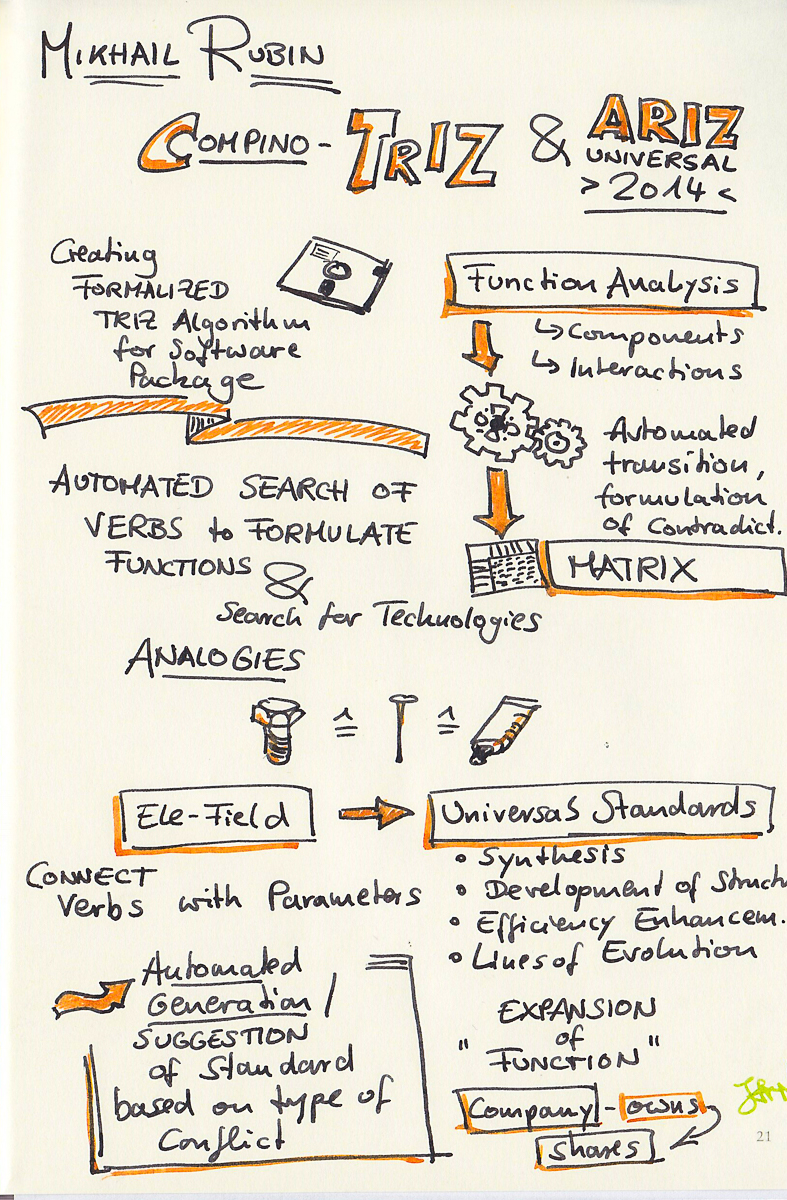 MIKHAIL RUBIN
COMPINO - TRIZ & ARIZ
UNIVERSAL
> 2014 <
Creating
FORMALIZED
TRIZ Algorithm
for Software
Package
Function Analysis
↳ Components
↳ Interactions
Automated
transition,
formulation
of Contradict.
MATRIX
AUTOMATED SEARCH OF
VERBS to FORMULATE
FUNCTIONS &
Search for Technologies
ANALOGIES
≙ ≙
Ele-Field
Universal Standards
CONNECT
Verbs with Parameters
• Synthesis
• Development of Struct
• Efficiency Enhancem.
• Lines of Evolution
Automated
Generation /
SUGGESTION
of Standard
based on type of
Conflict
EXPANSION
of
"FUNCTION"
Company - owns
shares
21